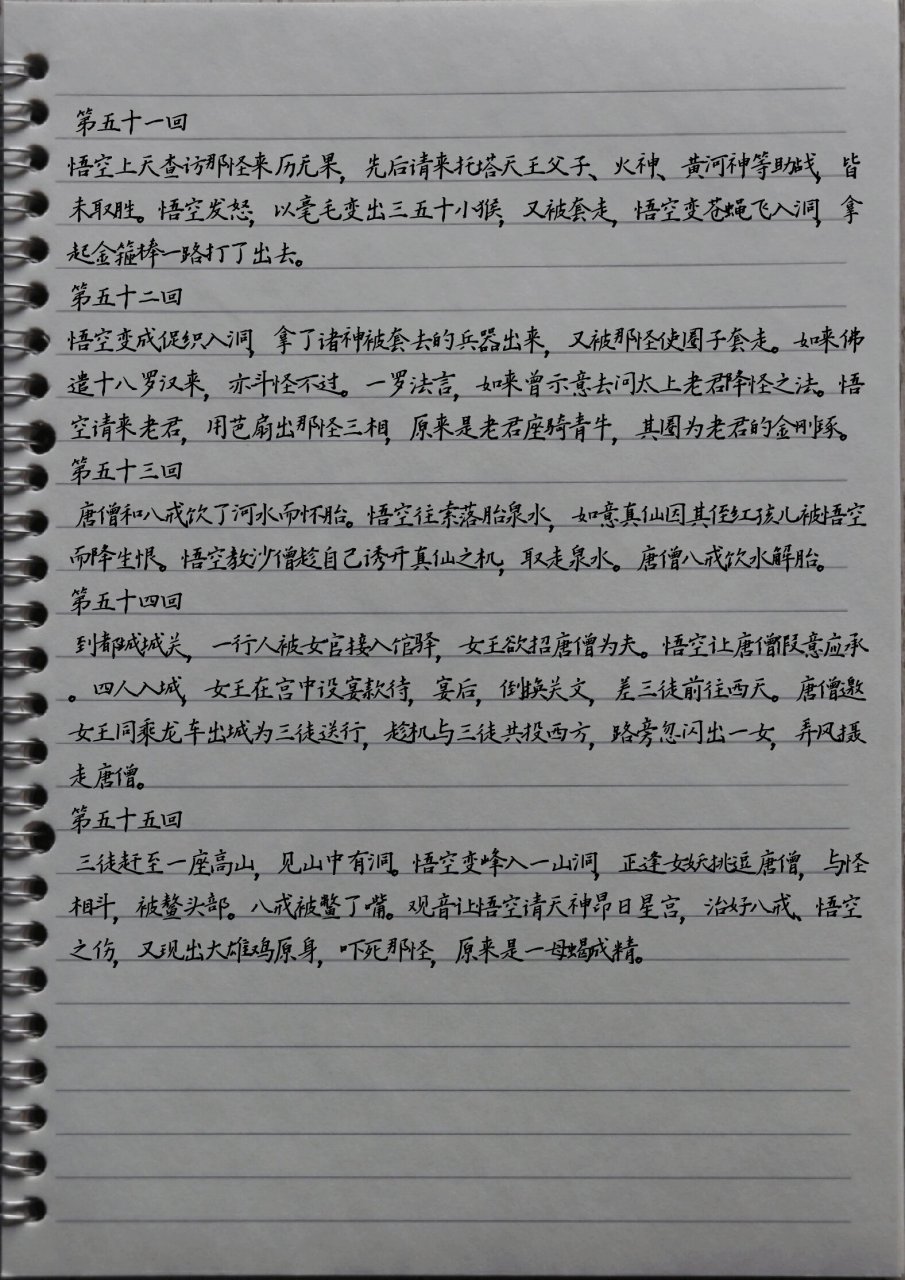 第五十一回
悟空上天查访那怪来历无果，先后请来托塔天王父子、火神、黄河神等助战，皆
未取胜。悟空发怒，以毫毛变出三五十小猴，又被套走，悟空变苍蝇飞入洞，拿
起金箍棒一路打了出去。
第五十二回
悟空变成促织入洞，拿了诸神被套去的兵器出来，又被那怪使圈子套走。如来佛
遣十八罗汉来，亦斗怪不过。一罗法言，如来曾示意去问太上老君降怪之法。悟
空请来老君，用芭扇出那怪三相，原来是老君座骑青牛，其圈为老君的金刚琢。
第五十三回
唐僧和八戒饮了河水而怀胎。悟空往索落胎泉水，如意真仙因其侄红孩儿被悟空
而降生恨。悟空教沙僧趁自己诱开真仙之机，取走泉水。唐僧八戒饮水解胎。
第五十四回
到都城城关，一行人被女官接入馆驿，女王欲招唐僧为夫。悟空让唐僧假意应承
。四人入城，女王在宫中设宴款待，宴后，倒换关文，差三徒前往西天。唐僧邀
女王同乘龙车出城为三徒送行，趁机与三徒共投西方，路旁忽闪出一女，弄风摄
走唐僧。
第五十五回
三徒赶至一座高山，见山中有洞。悟空变峰入一山洞，正逢女妖挑逗唐僧，与怪
相斗，被螯头部。八戒被螫了嘴。观音让悟空请天神昴日星宫，治好八戒、悟空
之伤，又现出大雄鸡原身，吓死那怪，原来是一母蝎成精。